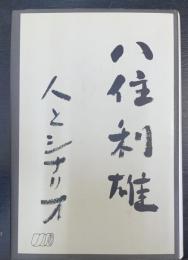 八住利雄
人とシナリオ